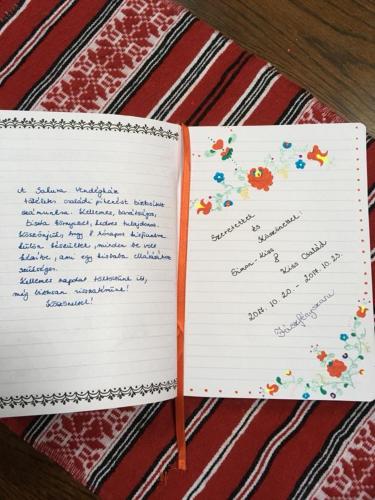 A Sakura Vendégház
tökéletes családi pihenést biztosított
számunkra. Kellemes, barátságos,
tiszta környezet, kedves tulajdonos.
Köszönjük, hogy 8 hónapos kisfiunkra
külön készültek, minden be volt
készítve, ami egy kisbaba ellátásához
szükséges.
Kellemes napokat töltöttünk itt,
még biztosan visszatérünk!
Köszönettel!
Szeretettel
és
Köszönettel:
Simon-Kiss
&
Kiss Család
2017. 10. 20. - 2017. 10. 23.